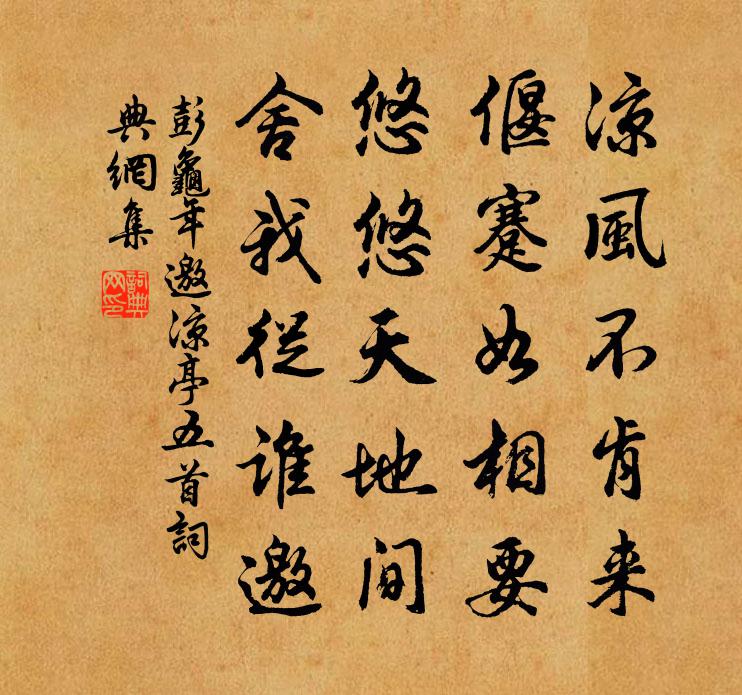 凉風不肯来
偃蹇如相要
悠悠天地間
舍我從誰邀
彭龜年邀凉亭五首詞
典網集
詞典网印